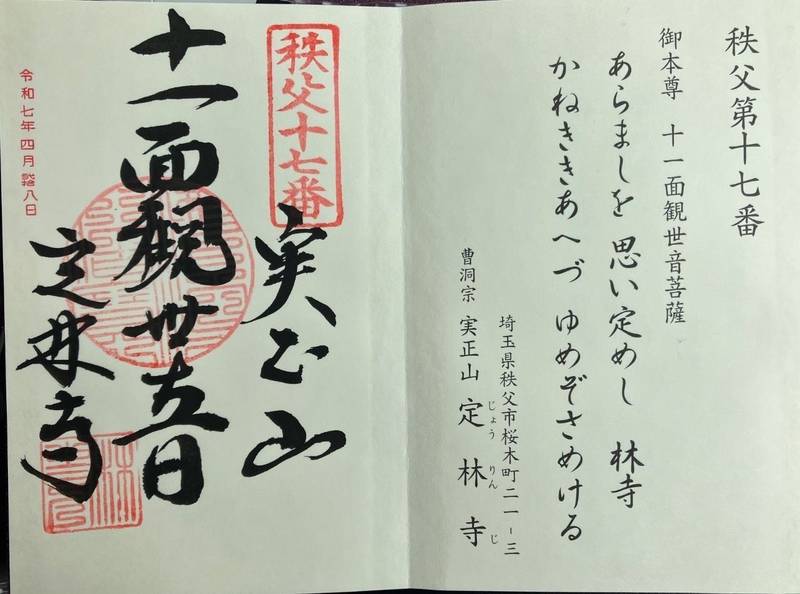 秩父第十七番
御本尊 十一面観世音菩薩
あらましを 思い定めし 林寺
かねききあへづ ゆめぞさめける
埼玉県秩父市桜木町二一-三
曹洞宗 実正山 定林寺
じょうりんじ
秩父十七番
実正山
十一面観世音
定林寺
令和七年四月 八日